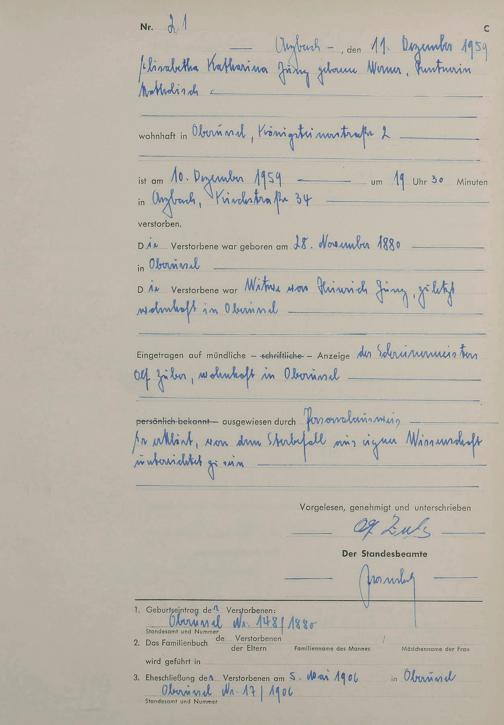 Nr. 21
C
Arzbach, den 11. Dezember 1959
Elisabetha Katharina Jung geborene Werner, Rentnerin
katholisch
wohnhaft in Oberursel, Königsteinerstraße 2
ist am 10. Dezember 1959 um 19 Uhr 30 Minuten
in Arzbach, Kirchstraße 34
verstorben.
Die Verstorbene war geboren am 28. November 1880
in Oberursel
Die Verstorbene war Witwe von Heinrich Jung, zuletzt
wohnhaft in Oberursel
Eingetragen auf mündliche – schriftliche – Anzeige des Schreinermeisters
wohnhaft in Oberursel
persönlich bekannt – ausgewiesen durch Personalausweis
Er erklärt, von dem Sterbefall aus eigner Wissenschaft
unterrichtet zu sein
Vorgelesen, genehmigt und unterschrieben
Der Standesbeamte
1. Geburtseintrag der Verstorbenen:
Oberursel Nr. 148/1880
Standesamt und Nummer
2. Das Familienbuch de Verstorbenen
der Eltern Familienname des Mannes Mädchenname der Frau
wird geführt in
3. Eheschließung der Verstorbenen am 5. Mai 1906 in Oberursel
Oberursel Nr. 17/1906
Standesamt und Nummer